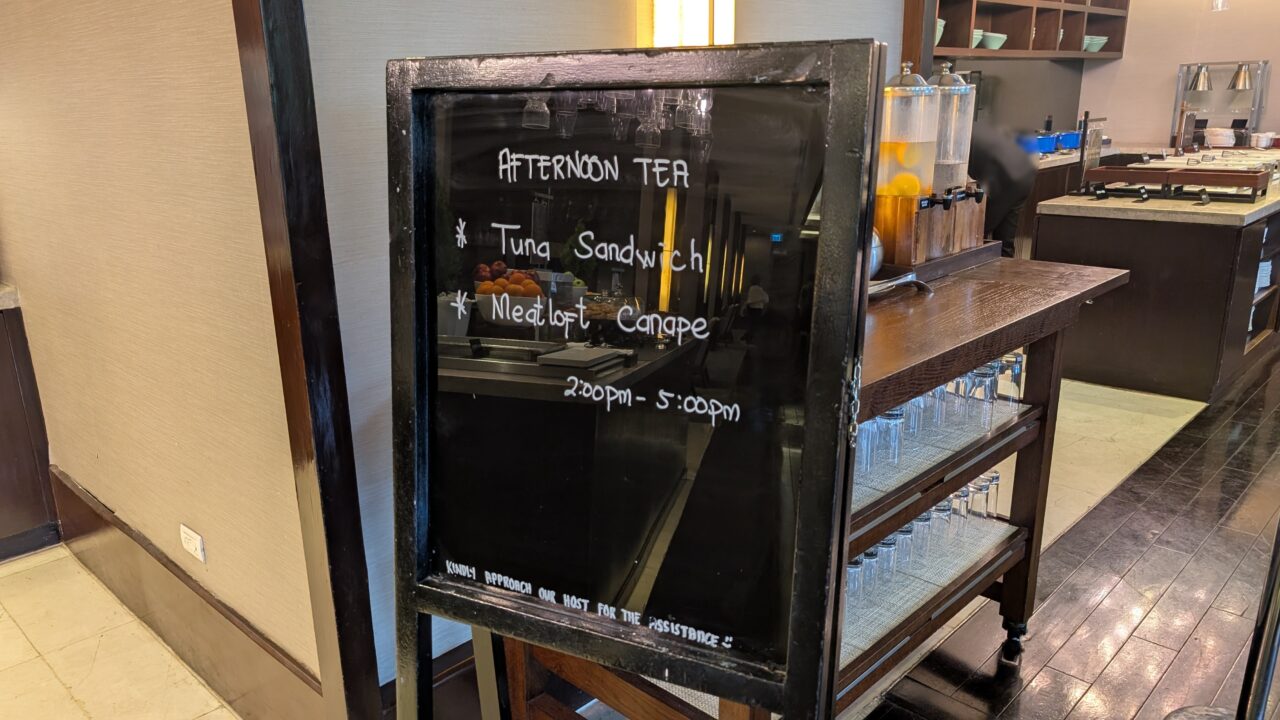 AFTERNOON TEA
* Tuna Sandwich
* Meatloft Canape
2:00pm - 5:00pm
KINDLY APPROACH OUR HOST FOR THE ASSISTANCE